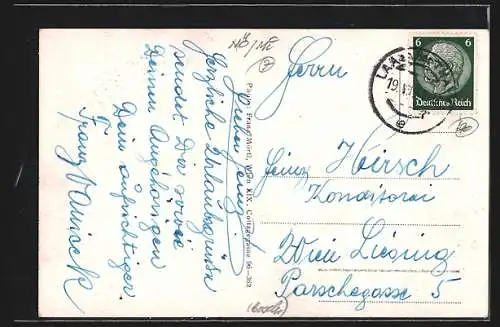 NÖ/Mi
Lieber Heinz!
Herzliche Urlaubsgrüsse
sendet Dir sowie
Deinen Angehörigen
Dein aufrichtiger
Franz
Photo Franz Mörtl, Wien XIX, Cottagegasse 36
Herrn
Heinz Hirsch
Konditorei
Wien Liesing
Parschegasse 5
6 6
Deutsches Reich
LAA
19.